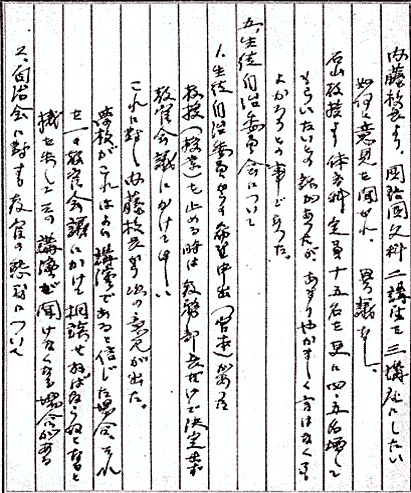 内藤校長より、国語国文科二講座を三講座にしたい
如何と意見を聞かれ、異議なし。
石山教授より体育科定員十五名を更に四、五名増して
もらいたいとの話があったが、あまりやかましく言はなくても
よかろうとの事であった。
五、生徒自治委員会について
1. 生徒自治委員からの希望申出(宮本)があった
教授(授業)を止める時は教務部長だけで決定せず
教官会議にかけてほしい
これに対し内藤校長から次の意見が出た。
学校がこれはよい講演であると信じた場合、それ
を一々教官会議にかけて相談せねばならぬとなると
機を失してその講演が聞けなくなる場合がある
2. 自治会に対する教官の態度について